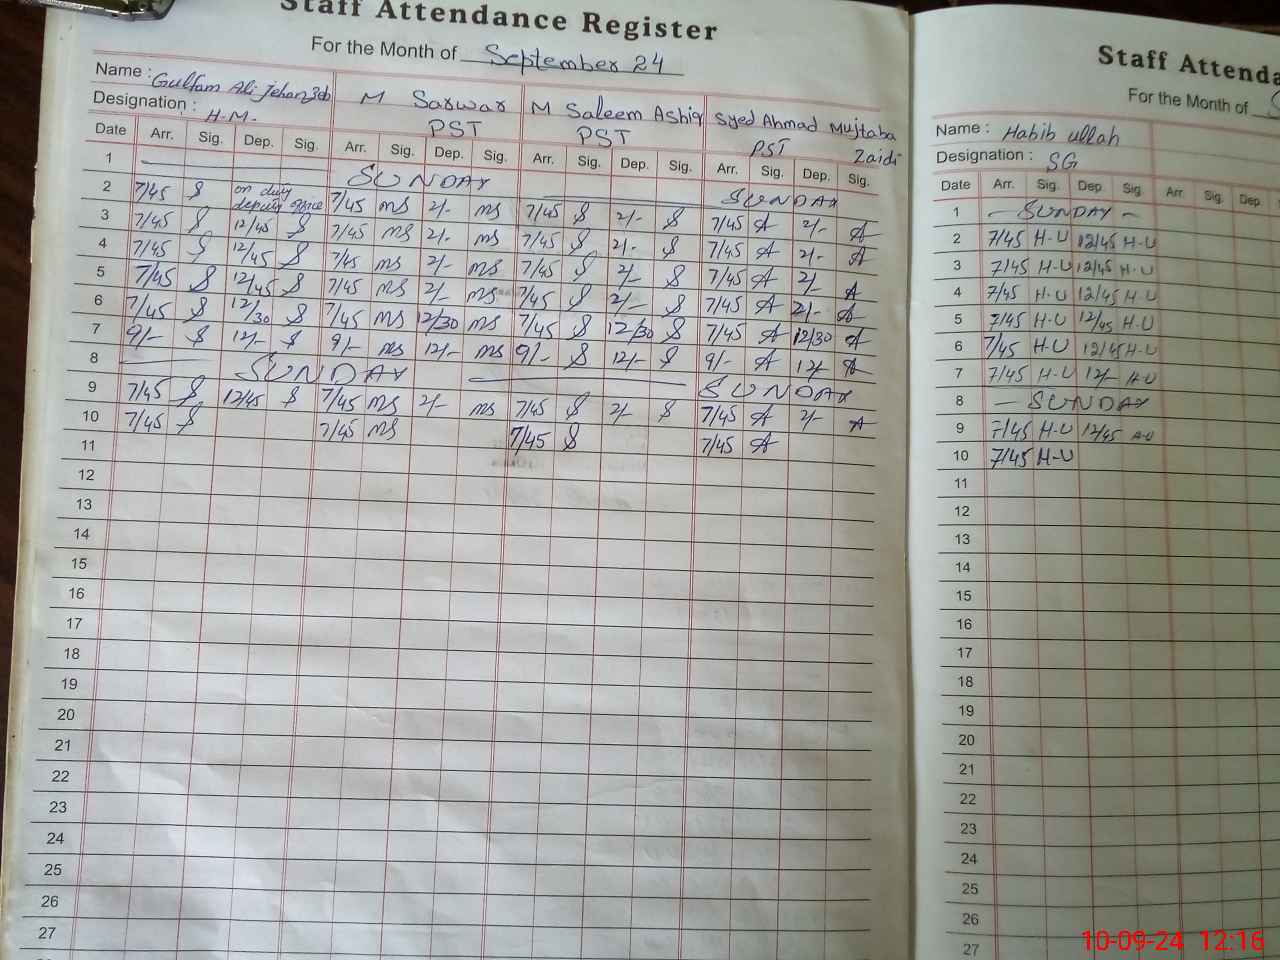 Staff Attendance Register
For the Month of September 24
Name : Gulfam Ali Jehanzeb M Sarwar M Saleem Ashiq Syed Ahmad Mujtaba Zaidi
Designation : H.M. PST PST PST
Date Arr. Sig. Dep. Sig. Arr. Sig. Dep. Sig. Arr. Sig. Dep. Sig. Arr. Sig. Dep. Sig.
1 SUNDAY SUNDAY
2 7/45 on duty deputy office 7/45 MS 2/- MS 7/45 2/- 7/45 A 2/- A
3 7/45 12/45 7/45 MS 2/- MS 7/45 2/- 7/45 A 2/- A
4 7/45 12/45 7/45 MS 2/- MS 7/45 2/- 7/45 A 2/- A
5 7/45 12/45 7/45 MS 2/- MS 7/45 2/- 7/45 A 2/- A
6 7/45 12/30 7/45 MS 12/30 MS 7/45 12/30 7/45 A 12/30 A
7 9/- 12/- 9/- MS 12/- MS 9/- 12/- 9/- A 12/- A
8 SUNDAY SUNDAY
9 7/45 12/45 7/45 MS 2/- MS 7/45 2/- 7/45 A 2/- A
10 7/45 7/45 MS 7/45 7/45 A
11
12
13
14
15
16
17
18
19
20
21
22
23
24
25
26
27
Staff Attenda
For the Month of S
Name : Habib ullah
Designation : SG
Date Arr. Sig. Dep. Sig. Arr. Sig. Dep.
1 - SUNDAY -
2 7/45 H-U 12/45 H-U
3 7/45 H-U 12/45 H-U
4 7/45 H-U 12/45 H-U
5 7/45 H-U 12/45 H-U
6 7/45 H-U 12/45 H-U
7 7/45 H-U 12/- H-U
8 - SUNDAY
9 7/45 H-U 12/45 H-U
10 7/45 H-U
11
12
13
14
15
16
17
18
19
20
21
22
23
24
25
26
27
10-09-24 12:16